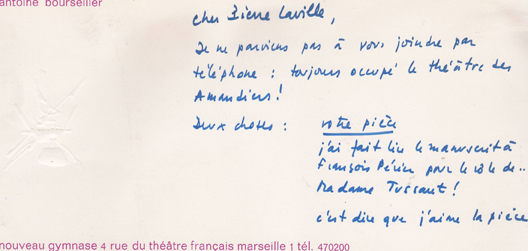 antoine bourseiller
Cher Pierre Laville,
Je ne parviens pas à vous joindre par
téléphone : toujours occupé le théâtre des
Amandiers !
Deux choses : votre pièce
j'ai fait lire le manuscrit à
François Périer pour le rôle de..
Madame Tussaut !
c'est dire que j'aime la pièce
nouveau gymnase 4 rue du théâtre français marseille 1 tél. 470200